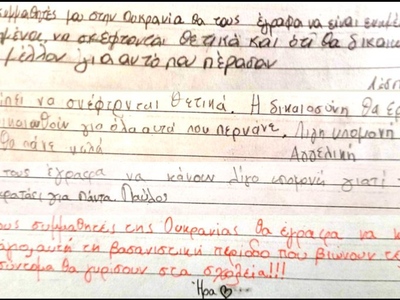 συμμαθητές μου στην Ουκρανία θα τους έγραφα να είναι
να σκέφτονται θετικά και ότι θα
μέλλον για αυτό που πέρασαν
να σκέφτονται θετικά. Η δικαιοσύνη θα
για όλα αυτά που περνάνε. Λίγη υπομονή
θα πάνε καλά
Αγγελική
τους έγραφα να κάνουν λίγο υπομονή γιατί
για πάντα Παύλος
συμμαθητές της Ουκρανίας θα έγραφα να
αυτή τη βασανιστική περίοδο που βιώνουν
σύντομα θα γυρίσουν στα σχολεία!!!
Ηρά